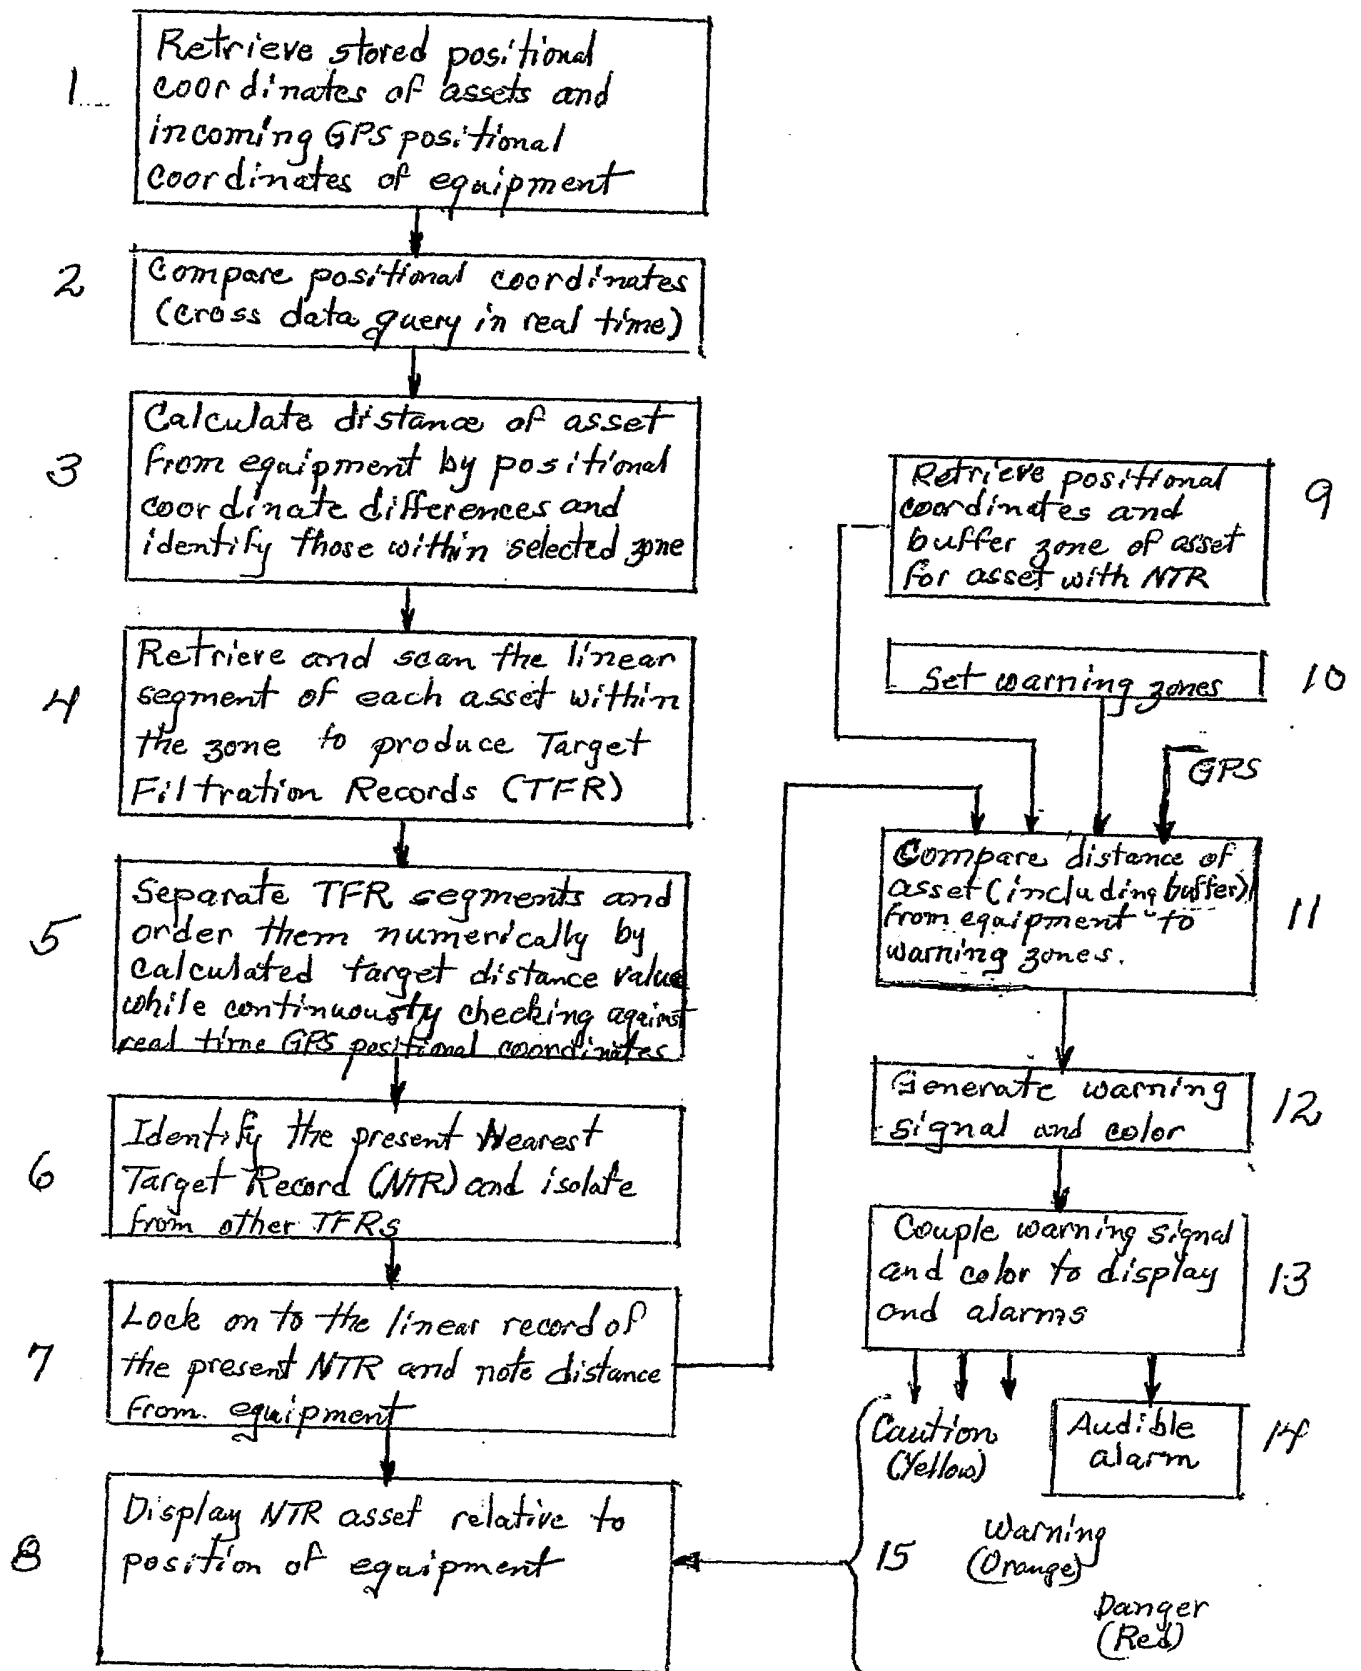 1
Retrieve stored positional
coordinates of assets and
incoming GPS positional
coordinates of equipment
2
Compare positional coordinates
(cross data query in real time)
3
Calculate distance of asset
from equipment by positional
coordinate differences and
identify those within selected zone
4
Retrieve and scan the linear
segment of each asset within
the zone to produce Target
Filtration Records (TFR)
5
Separate TFR segments and
order them numerically by
calculated target distance value
while continuously checking against
real time GPS positional coordinates
6
Identify the present Nearest
Target Record (NTR) and isolate
from other TFRs
7
Lock on to the linear record of
the present NTR and note distance
from equipment
8
Display NTR asset relative to
position of equipment
Retrieve positional
coordinates and
buffer zone of asset
for asset with NTR
9
Set warning zones
10
GPS
Compare distance of
asset (including buffer)
from equipment to
warning zones.
11
Generate warning
signal and color
12
Couple warning signal
and color to display
and alarms
13
Caution
(Yellow)
Audible
alarm
14
15
Warning
(Orange)
Danger
(Red)